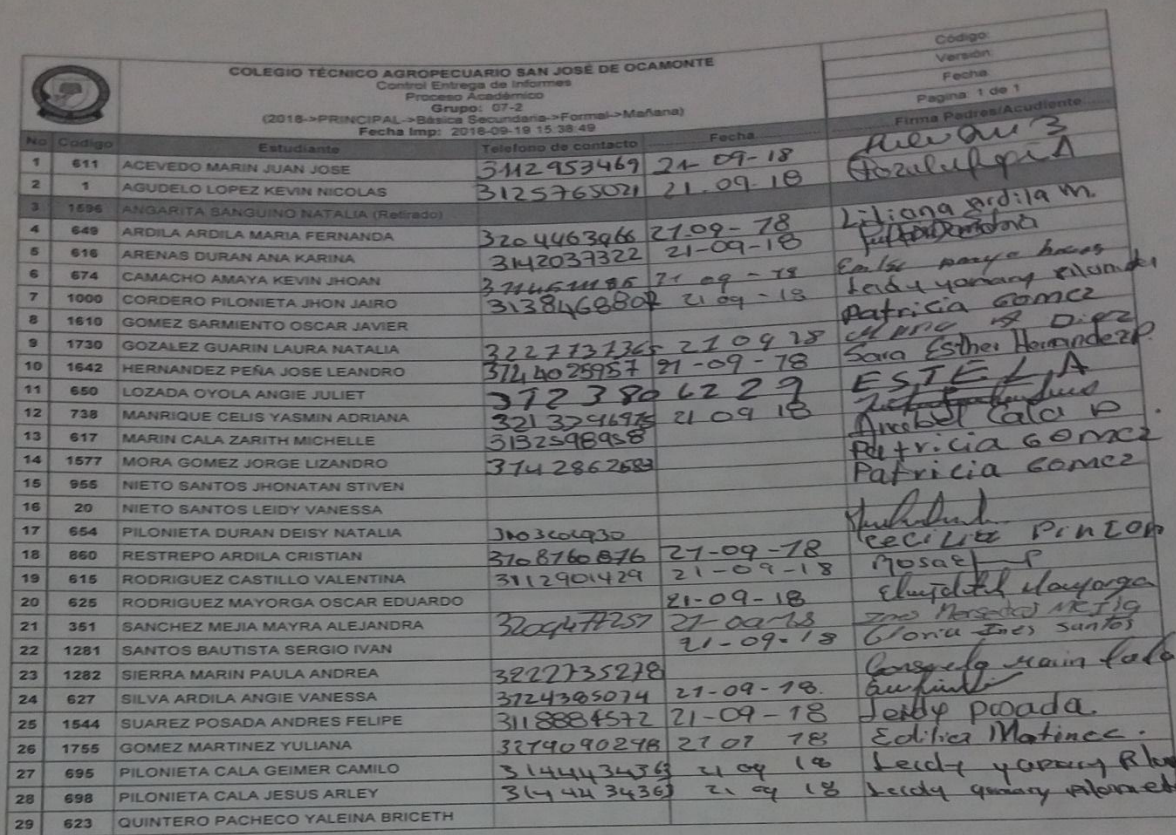 COLEGIO TÉCNICO AGROPECUARIO SAN JOSÉ DE OCAMONTE
Control Entrega de Informes
Proceso Académico
Grupo: 07-2
(2018->PRINCIPAL->Básica Secundaria->Formal->Mañana)
Fecha Imp: 2018-09-19 15:38:49
Código:
Versión:
Fecha
Pagina: 1 de 1
No Código Estudiante Telefono de contacto Fecha Firma Padres/Acudiente
1 611 ACEVEDO MARIN JUAN JOSE 3112953469 21-09-18
2 1 AGUDELO LOPEZ KEVIN NICOLAS 3125765021 21.09.18
3 1596 ANGARITA SANGUINO NATALIA (Retirado)
4 649 ARDILA ARDILA MARIA FERNANDA 3204463966 21-09-18 Liliana Ardila M.
5 616 ARENAS DURAN ANA KARINA 3142037322 21-09-18
6 674 CAMACHO AMAYA KEVIN JHOAN 21 09 - 18
7 1000 CORDERO PILONIETA JHON JAIRO 21 09 - 18 Leidy yomary
8 1610 GOMEZ SARMIENTO OSCAR JAVIER Patricia Gomez
9 1730 GOZALEZ GUARIN LAURA NATALIA 3227737365 21 09 18
10 1642 HERNANDEZ PEÑA JOSE LEANDRO 3124025957 21-09-18 Sara Esther Hernandez P.
11 650 LOZADA OYOLA ANGIE JULIET 312380 6227 ESTELA
12 738 MANRIQUE CELIS YASMIN ADRIANA 21 09 18
13 617 MARIN CALA ZARITH MICHELLE 3132598958 Anabel Cala
14 1577 MORA GOMEZ JORGE LIZANDRO 3142862683 Patricia Gomez
15 955 NIETO SANTOS JHONATAN STIVEN Patricia Gomez
16 20 NIETO SANTOS LEIDY VANESSA
17 654 PILONIETA DURAN DEISY NATALIA
18 860 RESTREPO ARDILA CRISTIAN 3108760876 21-09-18 Cecilia Pinzon
19 615 RODRIGUEZ CASTILLO VALENTINA 3112901429 21-09-18 Rosa
20 625 RODRIGUEZ MAYORGA OSCAR EDUARDO 21-09-18 Mayorga
21 351 SANCHEZ MEJIA MAYRA ALEJANDRA 3209477257 21-09-18
22 1281 SANTOS BAUTISTA SERGIO IVAN 21-09-18 Gloria Ines Santos
23 1282 SIERRA MARIN PAULA ANDREA 3222735278 Consuelo Marin
24 627 SILVA ARDILA ANGIE VANESSA 3124385074 21-09-18.
25 1544 SUAREZ POSADA ANDRES FELIPE 3118884572 21-09-18 Leidy posada.
26 1755 GOMEZ MARTINEZ YULIANA 3219090298 Edilia Matinec.
27 695 PILONIETA CALA GEIMER CAMILO 3144434363 21 09 18 Leidy yomary
28 698 PILONIETA CALA JESUS ARLEY 3144434363 21 09 18 Leidy yomary
29 623 QUINTERO PACHECO YALEINA BRICETH